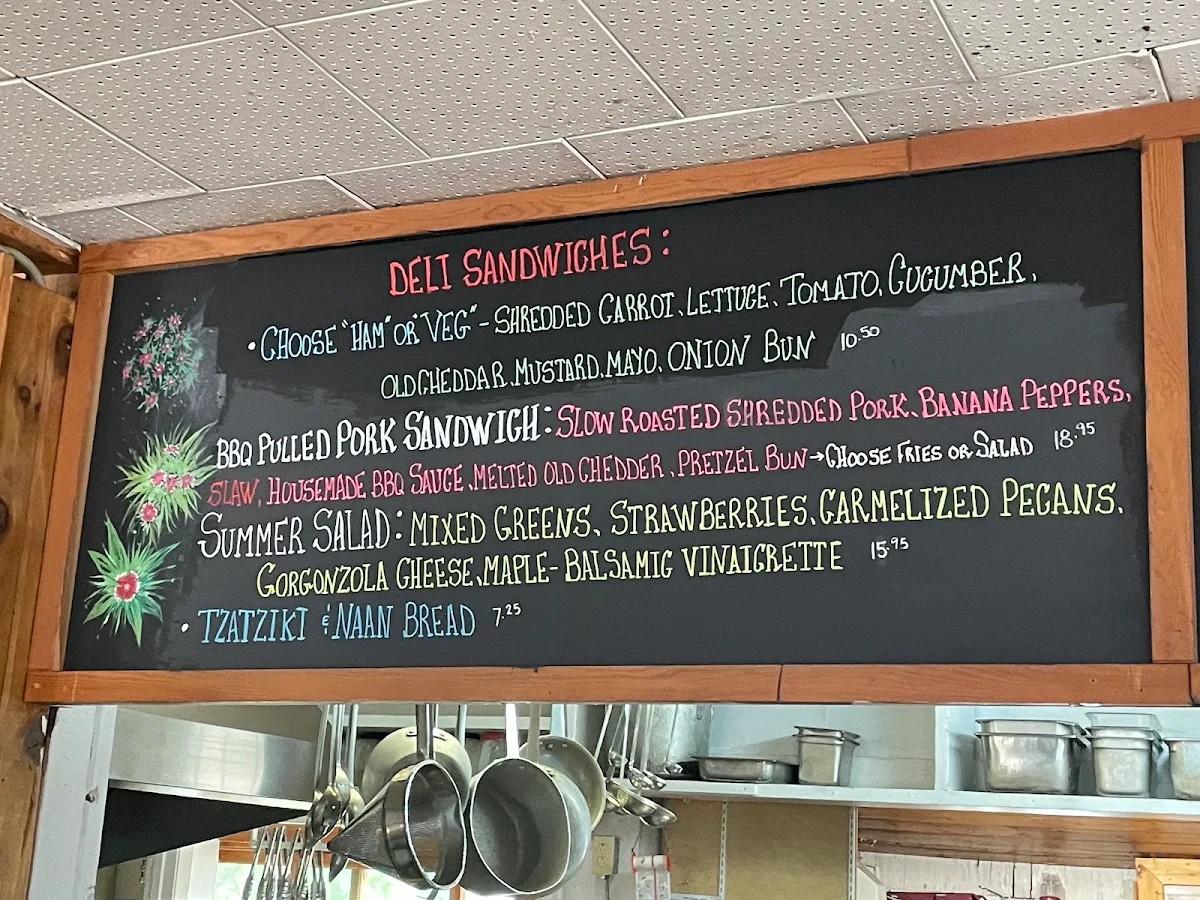 DELI SANDWICHES:
• CHOOSE "HAM" OR "VEG" - SHREDDED CARROT, LETTUCE, TOMATO, CUCUMBER,
OLD CHEDDAR, MUSTARD, MAYO, ONION BUN 10.50
BBQ PULLED PORK SANDWICH: SLOW ROASTED SHREDDED PORK, BANANA PEPPERS,
SLAW, HOUSEMADE BBQ SAUCE, MELTED OLD CHEDDER, PRETZEL BUN → CHOOSE FRIES OR SALAD 18.95
SUMMER SALAD: MIXED GREENS, STRAWBERRIES, CARMELIZED PECANS,
GORGONZOLA CHEESE, MAPLE-BALSAMIC VINAIGRETTE 15.95
• TZATZIKI & NAAN BREAD 7.25